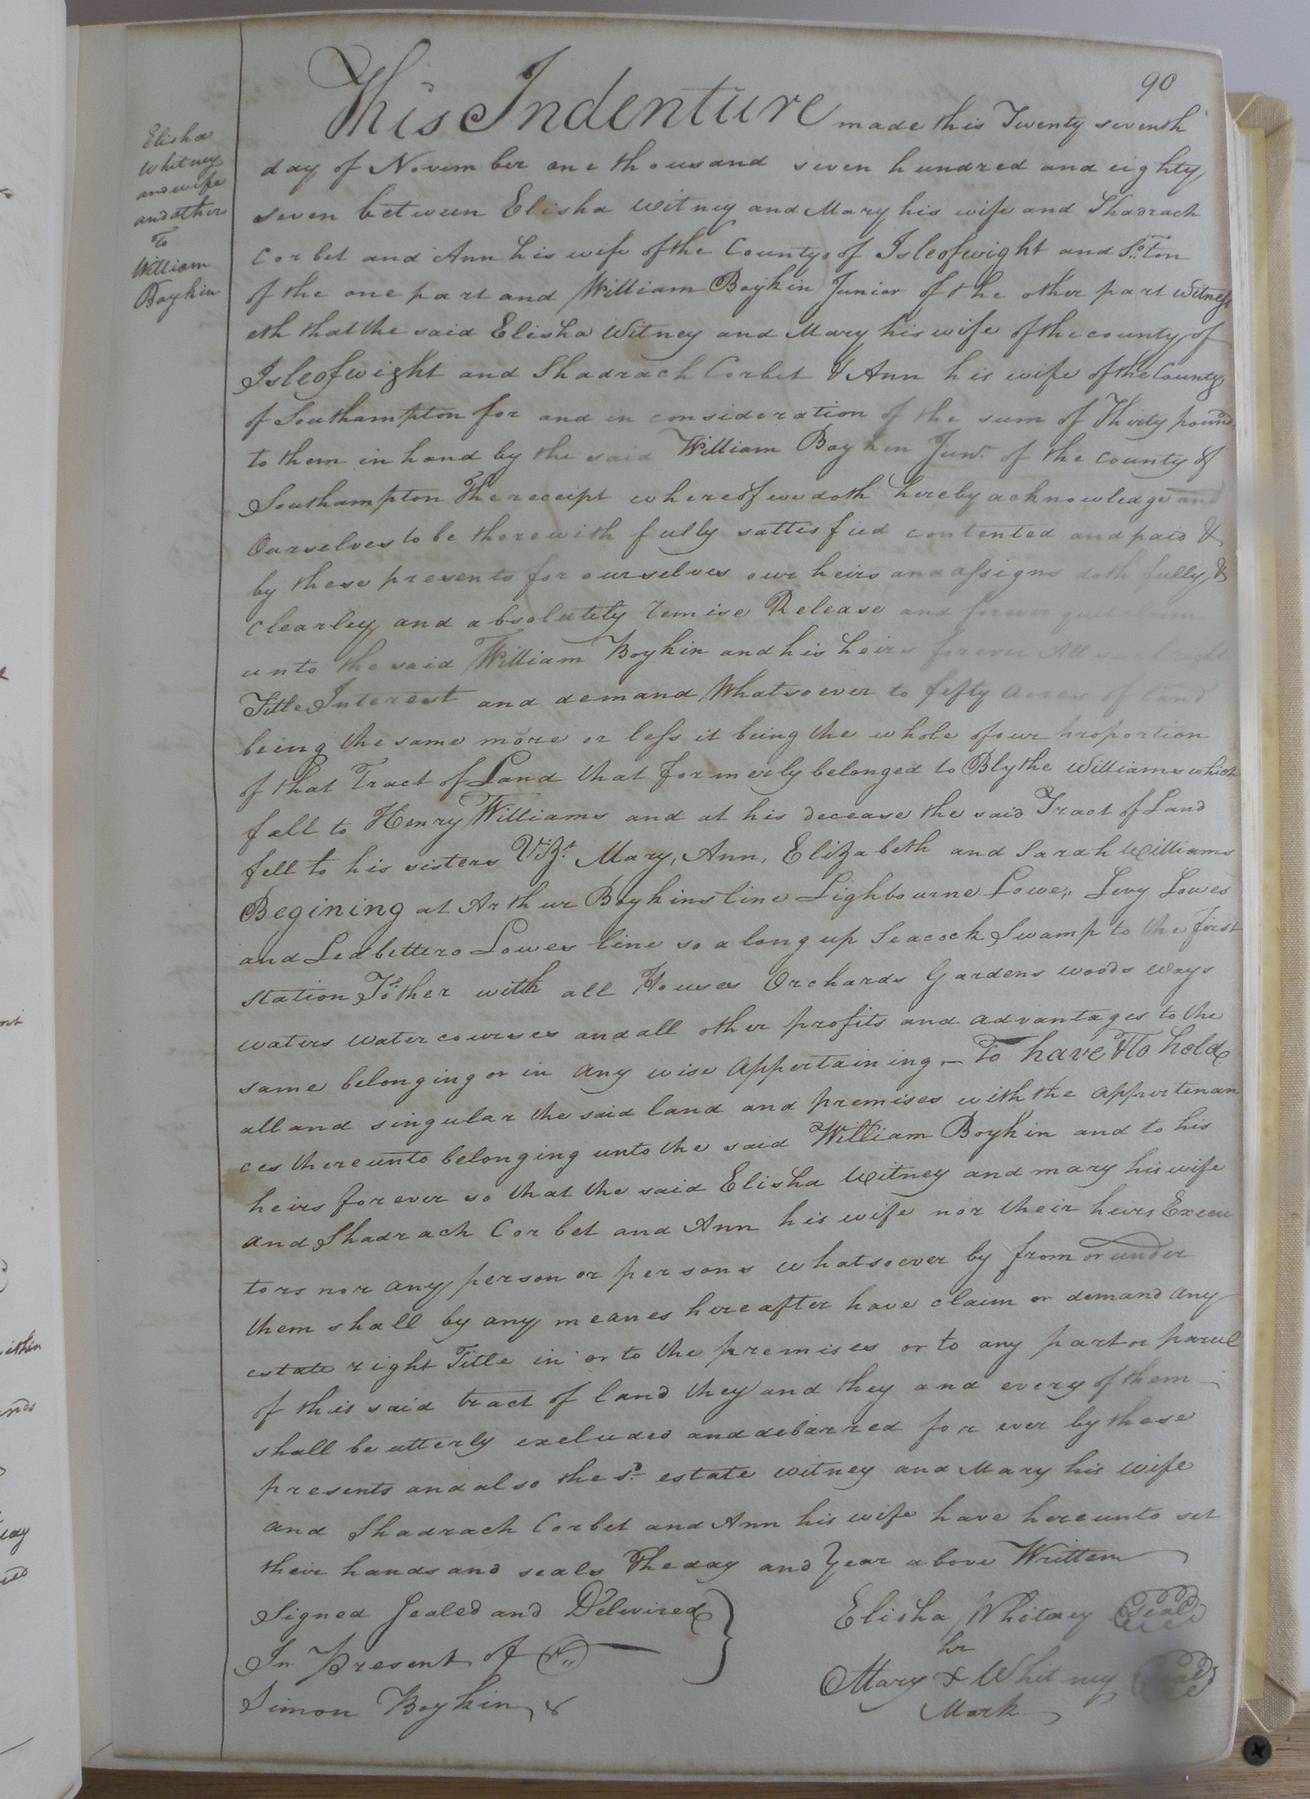 90
Elisha
Whitney
and wife
and other
To
William
Boykin
This Indenture made this Twenty seventh
day of November one thousand seven hundred and eighty
seven between Elisha Witney and Mary his wife and Shadrach
Corbet and Ann his wife of the County of Isleofwight and So.ton
of the one part and William Boykin Junior of the other part Witness
eth that the said Elisha Witney and Mary his wife of the county of
Isleofwight and Shadrach Corbet & Ann his wife of the County
of Southampton for and in consideration of the sum of Thirty pound
to them in hand by the said William Boykin Junr. of the county of
Southampton The receipt whereof we doth hereby acknowledge and
Ourselves to be therewith fully sattisfied contented and paid &
by these presents for ourselves our heirs and assigns doth fully &
clearley and absolutely remise Release and forever
unto the said William Boykin and his heirs forever All such right
Title Interest and demand Whatsoever to fifty acres of land
being the same more or less it being the whole of our proportion
of that Tract of Land that formerly belonged to Blythe Williams which
fall to Henry Williams and at his decease the said Tract of Land
fell to his sisters Vizt. Mary, Ann, Elizabeth and Sarah Williams
Begining at Arthur Boykins line Lighbourne Lowe,, Levy Lowes
and Ledbetters Lowes line so along up Seacock Swamp to the first
station To.ther with all Houses Orchards Gardens woods ways
waters watercourses and all other profits and advantages to the
same belonging or in any wise appertaining - To have & To hold
all and singular the said land and premises with the appurtenan
ces thereunto belonging unto the said William Boykin and to his
heirs forever so that the said Elisha Witney and mary his wife
and Shadrach Corbet and Ann his wife nor their heirs Execu
tors nor any person or persons whatsoever by from or under
them shall by any meanes hereafter have claim or demand any
estate right Title in or to the premises or to any part or parcel
of this said tract of land they and they and every of them
shall be utterly excluded and debarred for ever by these
presents and also the sd. estate witney and Mary his wife
and Shadrach Corbet and Ann his wife have hereunto set
their hands and seals the day and Year above Written
Signed Sealed and Delivired
In Present of
Simon Boykin &
Elisha Whitney Seal
her
Mary X Whitney Seal
Mark